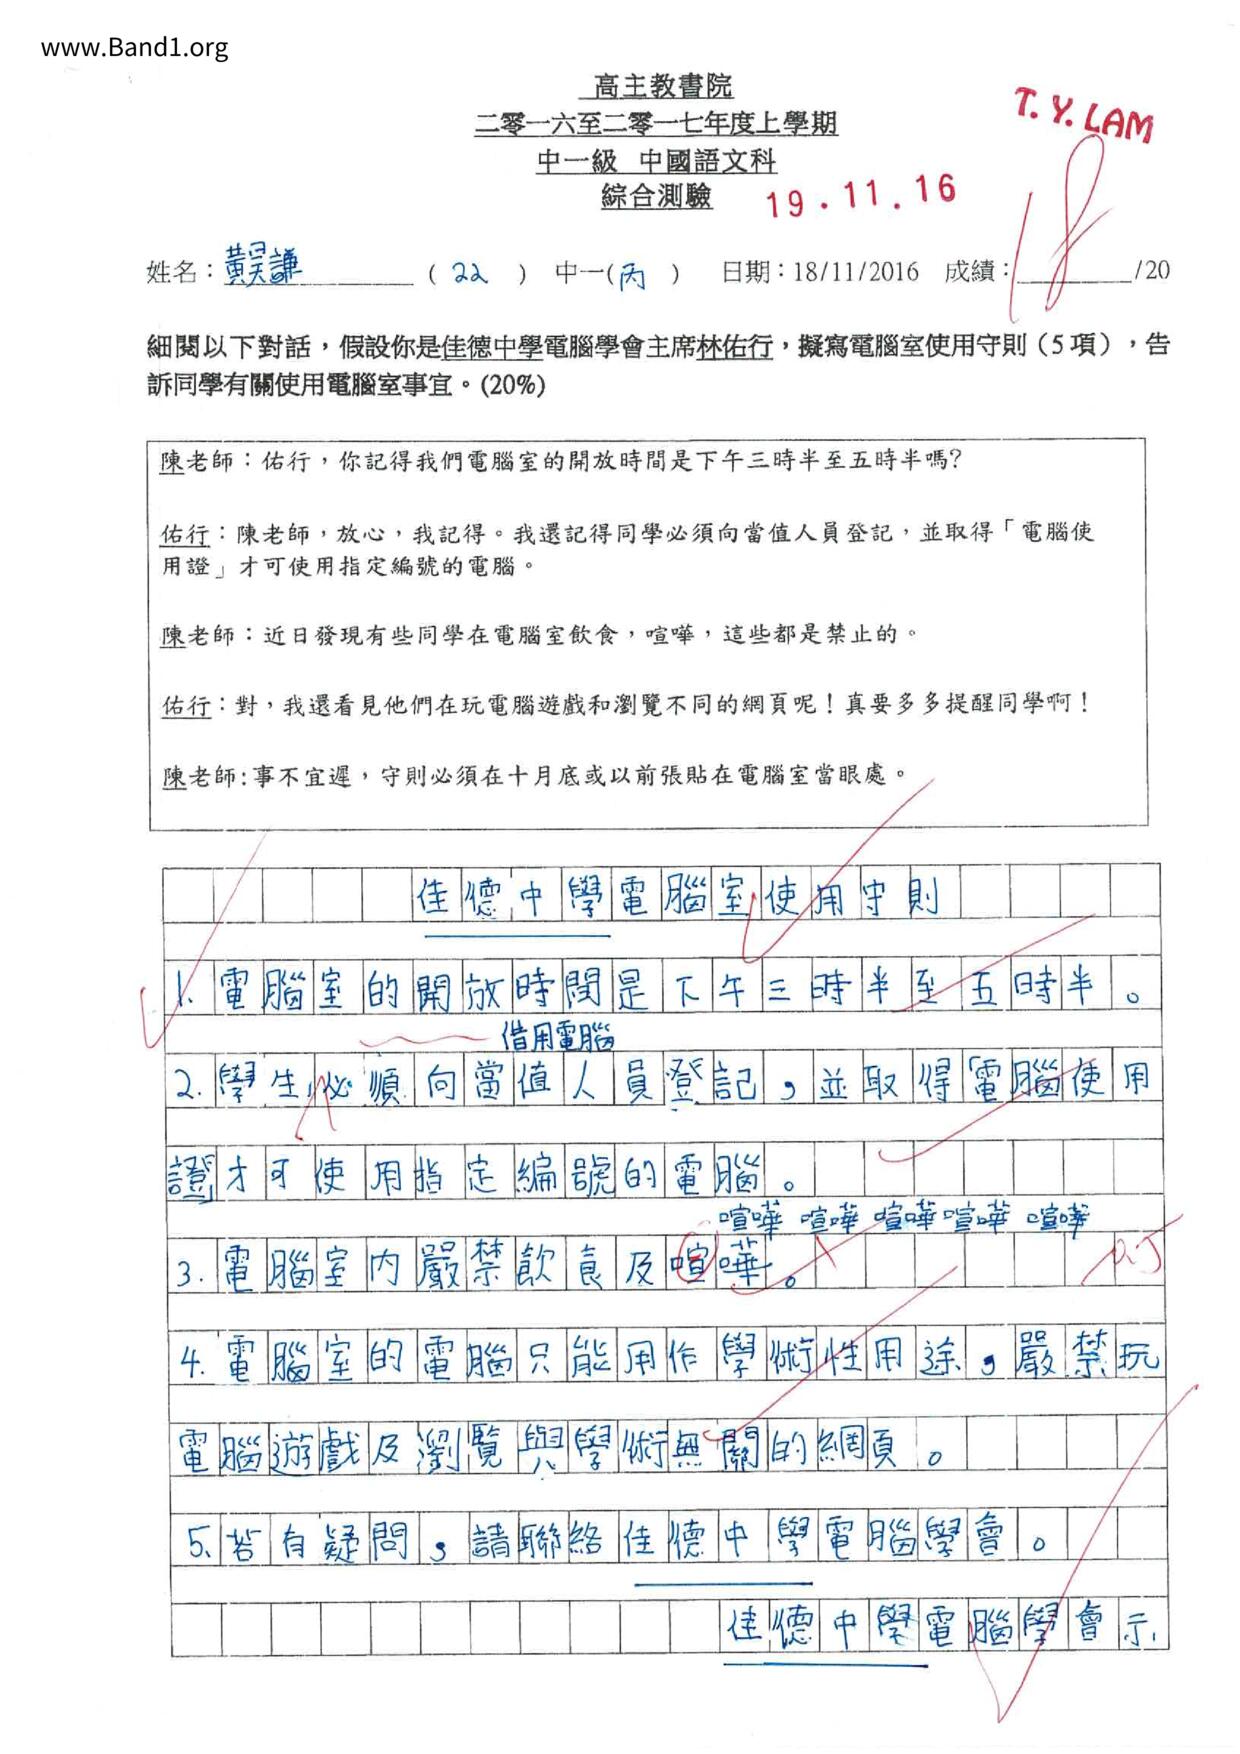 www.Band1.org
高主教書院
二零一六至二零一七年度上學期
中一級 中國語文科
綜合測驗
T. Y. LAM
19.11.16
姓名：黃昊謙 (22) 中一(丙) 日期：18/11/2016 成績：18/20
細閱以下對話，假設你是佳德中學電腦學會主席林佑行，擬寫電腦室使用守則（5 項），告
訴同學有關使用電腦室事宜。(20%)
陳老師：佑行，你記得我們電腦室的開放時間是下午三時半至五時半嗎?
佑行：陳老師，放心，我記得。我還記得同學必須向當值人員登記，並取得「電腦使
用證」才可使用指定編號的電腦。
陳老師：近日發現有些同學在電腦室飲食，喧嘩，這些都是禁止的。
佑行：對，我還看見他們在玩電腦遊戲和瀏覽不同的網頁呢！真要多多提醒同學啊！
陳老師:事不宜遲，守則必須在十月底或以前張貼在電腦室當眼處。
佳德中學電腦室使用守則
1. 電腦室的開放時間是下午三時半至五時半。
借用電腦
2. 學生必須向當值人員登記，並取得「電腦使用
證」才可使用指定編號的電腦。
喧嘩 喧嘩 喧嘩 喧嘩 喧嘩
3. 電腦室內嚴禁飲食及喧嘩。
4. 電腦室的電腦只能用作學術性用途，嚴禁玩
電腦遊戲及瀏覽與學術無關的網頁。
5. 若有疑問，請聯絡佳德中學電腦學會。
佳德中學電腦學會示